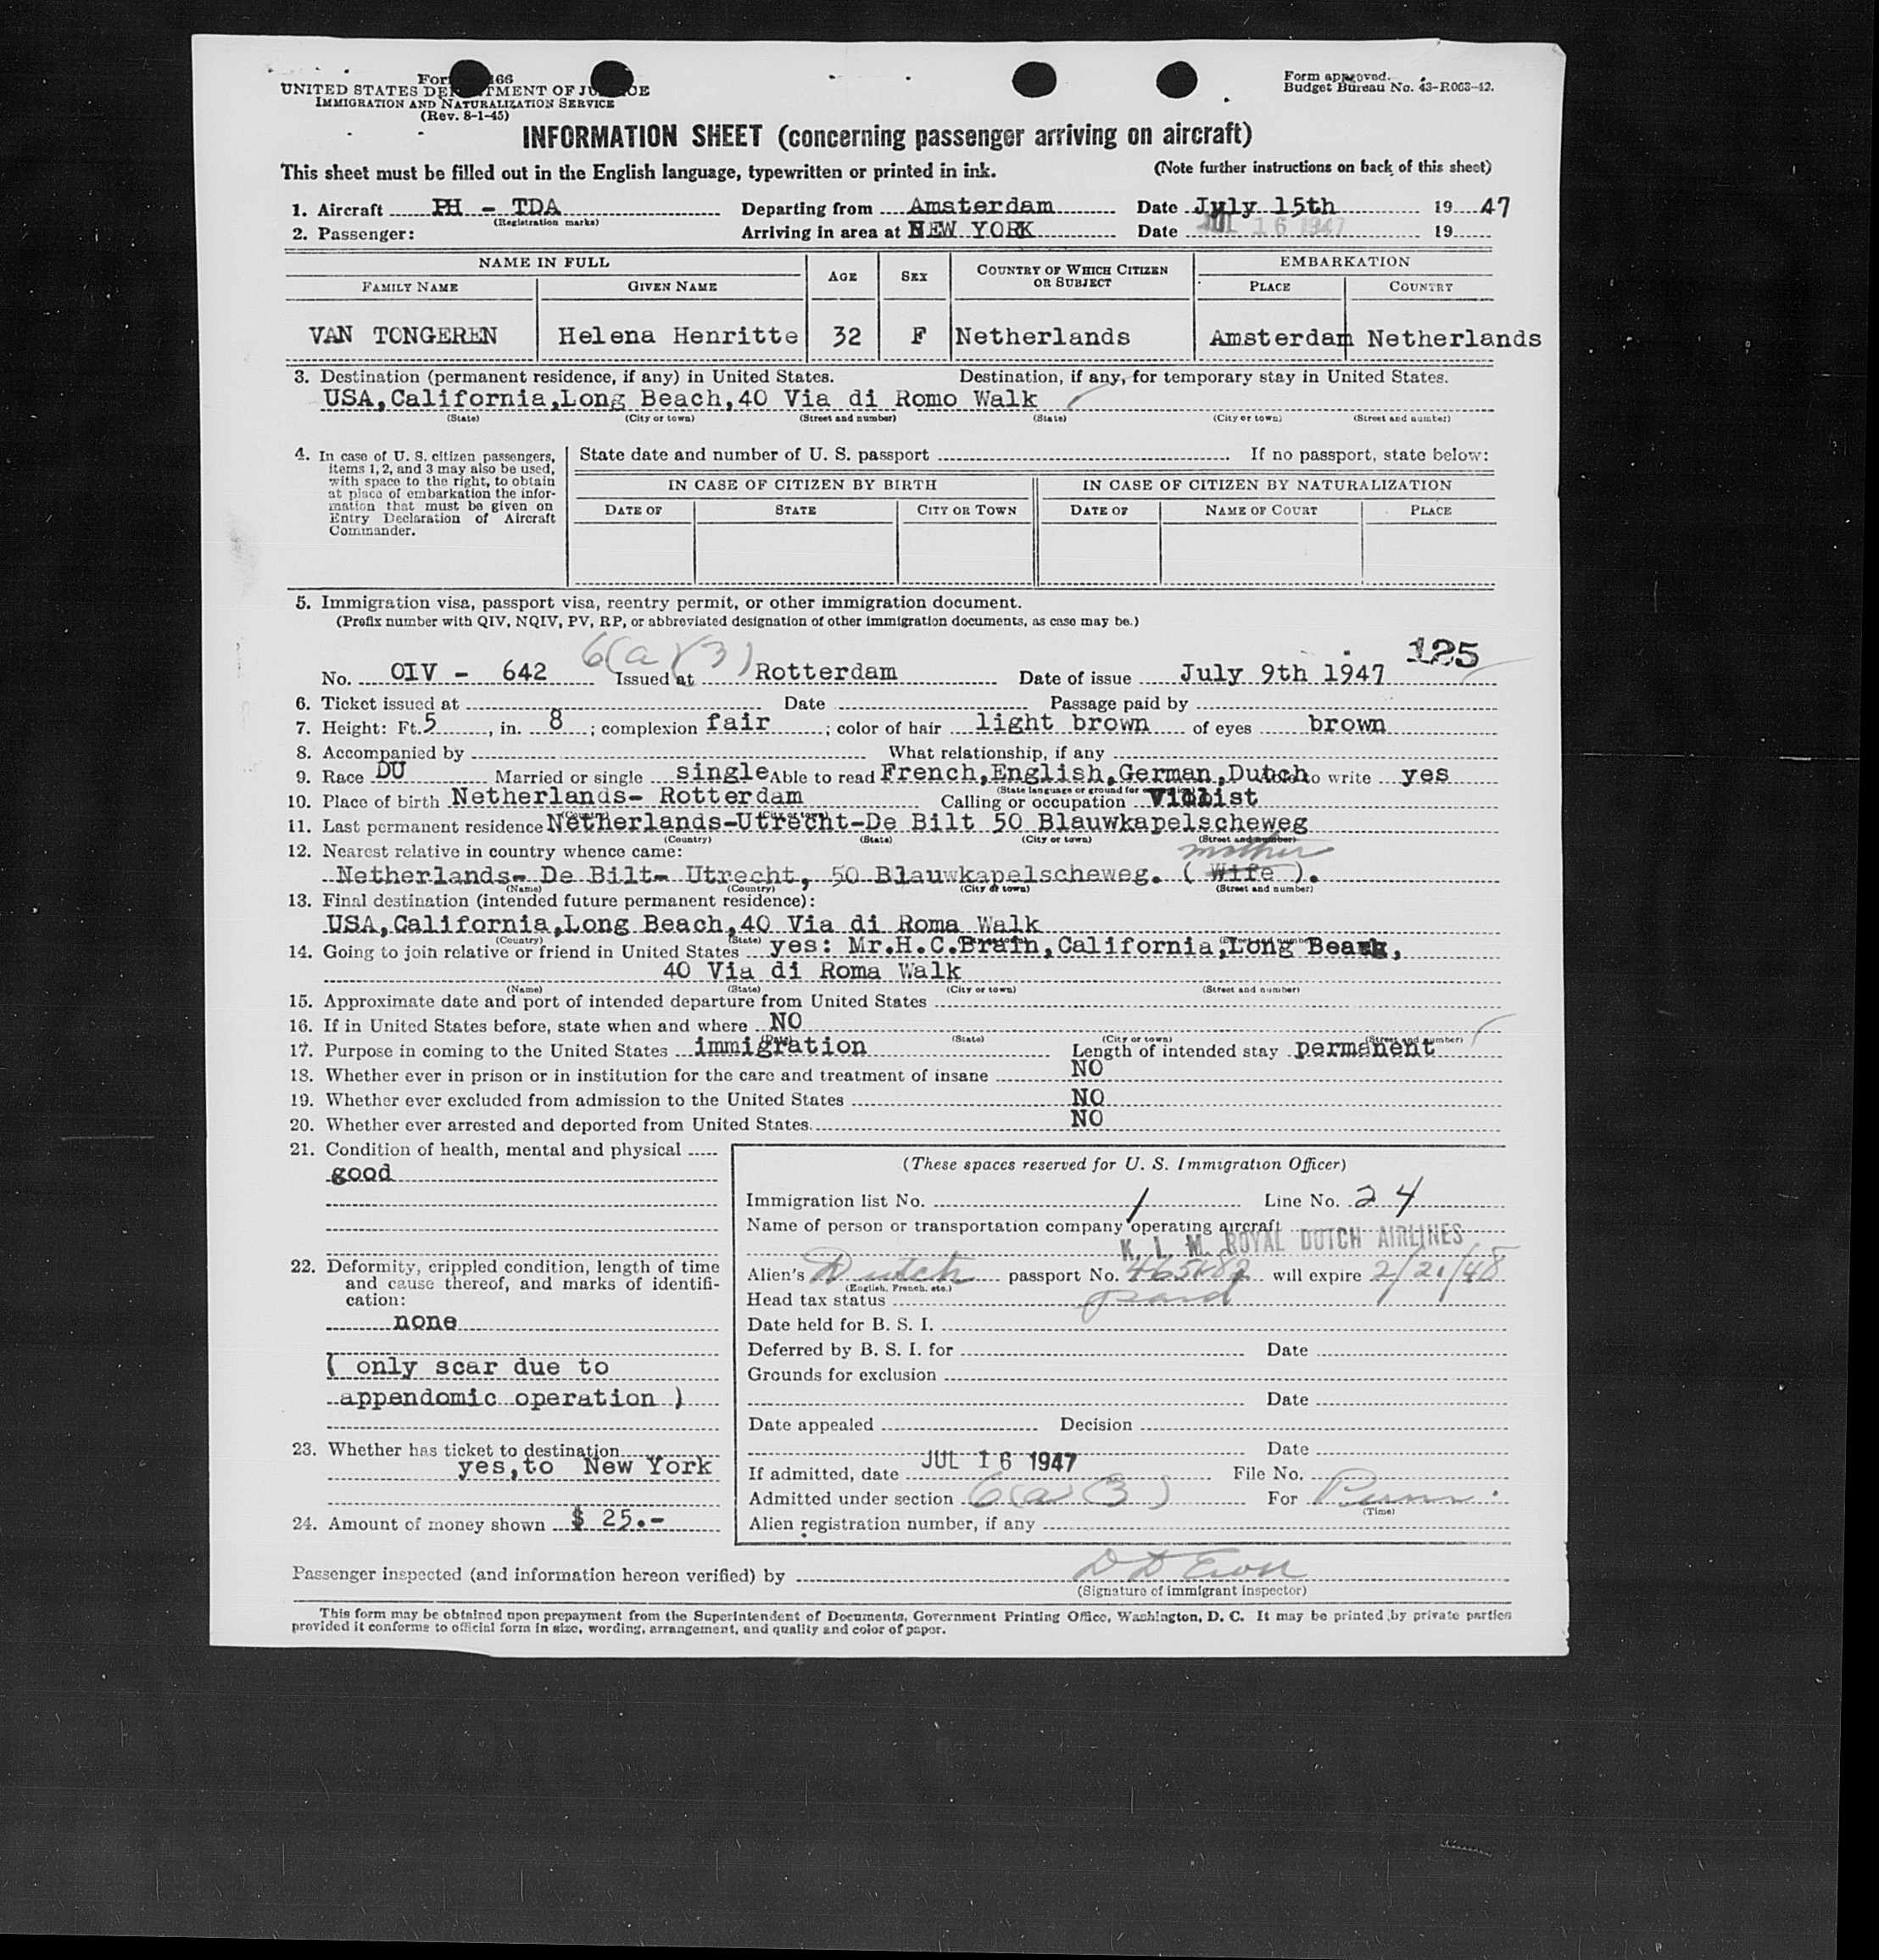 For 66
UNITED STATES DEPARTMENT OF JUSTICE
IMMIGRATION AND NATURALIZATION SERVICE
(Rev. 8-1-45)
Form approved.
Budget Bureau No. 43-R063-42.
INFORMATION SHEET (concerning passenger arriving on aircraft)
This sheet must be filled out in the English language, typewritten or printed in ink. (Note further instructions on back of this sheet)
1. Aircraft PH - TDA Departing from Amsterdam Date July 15th 19 47
(Registration marks)
2. Passenger: Arriving in area at NEW YORK Date JUL 16 1947 19
NAME IN FULL AGE SEX COUNTRY OF WHICH CITIZEN OR SUBJECT EMBARKATION
FAMILY NAME GIVEN NAME PLACE COUNTRY
VAN TONGEREN Helena Henritte 32 F Netherlands Amsterdam Netherlands
3. Destination (permanent residence, if any) in United States. Destination, if any, for temporary stay in United States.
USA,California,Long Beach,40 Via di Romo Walk
(State) (City or town) (Street and number) (State) (City or town) (Street and number)
4. In case of U. S. citizen passengers,
items 1, 2, and 3 may also be used,
with space to the right, to obtain
at place of embarkation the infor-
mation that must be given on
Entry Declaration of Aircraft
Commander.
State date and number of U. S. passport If no passport, state below:
IN CASE OF CITIZEN BY BIRTH IN CASE OF CITIZEN BY NATURALIZATION
DATE OF STATE CITY OR TOWN DATE OF NAME OF COURT PLACE
5. Immigration visa, passport visa, reentry permit, or other immigration document.
(Prefix number with QIV, NQIV, PV, RP, or abbreviated designation of other immigration documents, as case may be.)
6(a)(3) 125
No. OIV - 642 Issued at Rotterdam Date of issue July 9th 1947
6. Ticket issued at Date Passage paid by
7. Height: Ft. 5, in. 8; complexion fair; color of hair light brown of eyes brown
8. Accompanied by What relationship, if any
9. Race DU Married or single single Able to read French,English,German,Dutch to write yes
10. Place of birth Netherlands- Rotterdam Calling or occupation
11. Last permanent residence Netherlands-Utrecht-De Bilt 50 Blauwkapelscheweg
(Country) (State) (City or town) (Street and number)
12. Nearest relative in country whence came: mother
Netherlands- De Bilt- Utrecht, 50 Blauwkapelscheweg. ( Wife ).
(Name) (Country) (City or town) (Street and number)
13. Final destination (intended future permanent residence):
USA,California,Long Beach,40 Via di Roma Walk
(Country) (State)
14. Going to join relative or friend in United States yes: Mr.H.C.Brain,California,Long Beach,
40 Via di Roma Walk
(Name) (State) (City or town) (Street and number)
15. Approximate date and port of intended departure from United States
16. If in United States before, state when and where NO
(State) (City or town) (Street and number)
17. Purpose in coming to the United States immigration Length of intended stay permanent
18. Whether ever in prison or in institution for the care and treatment of insane NO
19. Whether ever excluded from admission to the United States NO
20. Whether ever arrested and deported from United States. NO
21. Condition of health, mental and physical
good
22. Deformity, crippled condition, length of time
and cause thereof, and marks of identifi-
cation:
none
( only scar due to
appendomic operation )
23. Whether has ticket to destination
yes,to New York
24. Amount of money shown $ 25.-
(These spaces reserved for U. S. Immigration Officer)
Immigration list No. 1 Line No. 24
Name of person or transportation company operating aircraft
K. L. M. ROYAL DUTCH AIRLINES
Alien's Dutch passport No. will expire 2/21/48
(English, French, etc.)
Head tax status paid
Date held for B. S. I.
Deferred by B. S. I. for Date
Grounds for exclusion
Date
Date appealed Decision
Date
If admitted, date JUL 16 1947 File No.
Admitted under section 6(a)(3) For Perm.
(Time)
Alien registration number, if any
Passenger inspected (and information hereon verified) by
(Signature of immigrant inspector)
This form may be obtained upon prepayment from the Superintendent of Documents, Government Printing Office, Washington, D. C. It may be printed by private parties
provided it conforms to official form in size, wording, arrangement, and quality and color of paper.